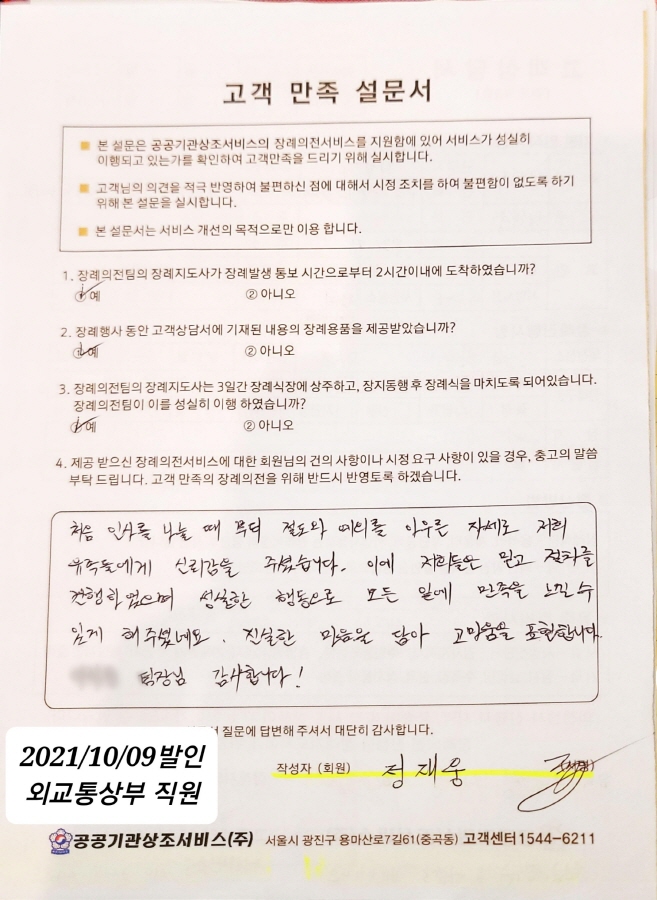 고객 만족 설문서
■ 본 설문은 공공기관상조서비스의 장례의전서비스를 지원함에 있어 서비스가 성실히
이행되고 있는가를 확인하여 고객만족을 드리기 위해 실시합니다.
■ 고객님의 의견을 적극 반영하여 불편하신 점에 대해서 시정 조치를 하여 불편함이 없도록 하기
위해 본 설문을 실시합니다.
■ 본 설문서는 서비스 개선의 목적으로만 이용 합니다.
1. 장례의전팀의 장례지도사가 장례발생 통보 시간으로부터 2시간이내에 도착하였습니까?
① 예 ② 아니오
2. 장례행사 동안 고객상담서에 기재된 내용의 장례용품을 제공받았습니까?
① 예 ② 아니오
3. 장례의전팀의 장례지도사는 3일간 장례식장에 상주하고, 장지동행 후 장례식을 마치도록 되어있습니다.
장례의전팀이 이를 성실히 이행 하였습니까?
① 예 ② 아니오
4. 제공 받으신 장례의전서비스에 대한 회원님의 건의 사항이나 시정 요구 사항이 있을 경우, 충고의 말씀
부탁 드립니다. 고객 만족의 장례의전을 위해 반드시 반영토록 하겠습니다.
처음 인사를 나눌 때 부터 절도와 예의를 아우른 자세로 저희
유족들에게 신뢰감을 주셨습니다. 이에 저희들은 믿고 절차를
진행하였으며 성실한 행동으로 모든 일에 만족을 느낄수
있게 해주셨네요. 진실한 마음을 담아 고마움을 표현합니다.
팀장님 감사합니다!
질문에 답변해 주셔서 대단히 감사합니다.
2021/10/09발인
외교통상부 직원
작성자 (회원) 정재웅
공공기관상조서비스(주) 서울시 광진구 용마산로7길61(중곡동) 고객센터1544-6211